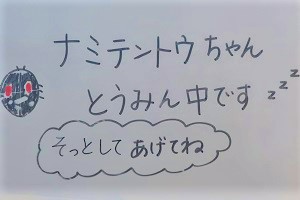 ナミテントウちゃん
とうみん中です zzz
そっとしてあげてね